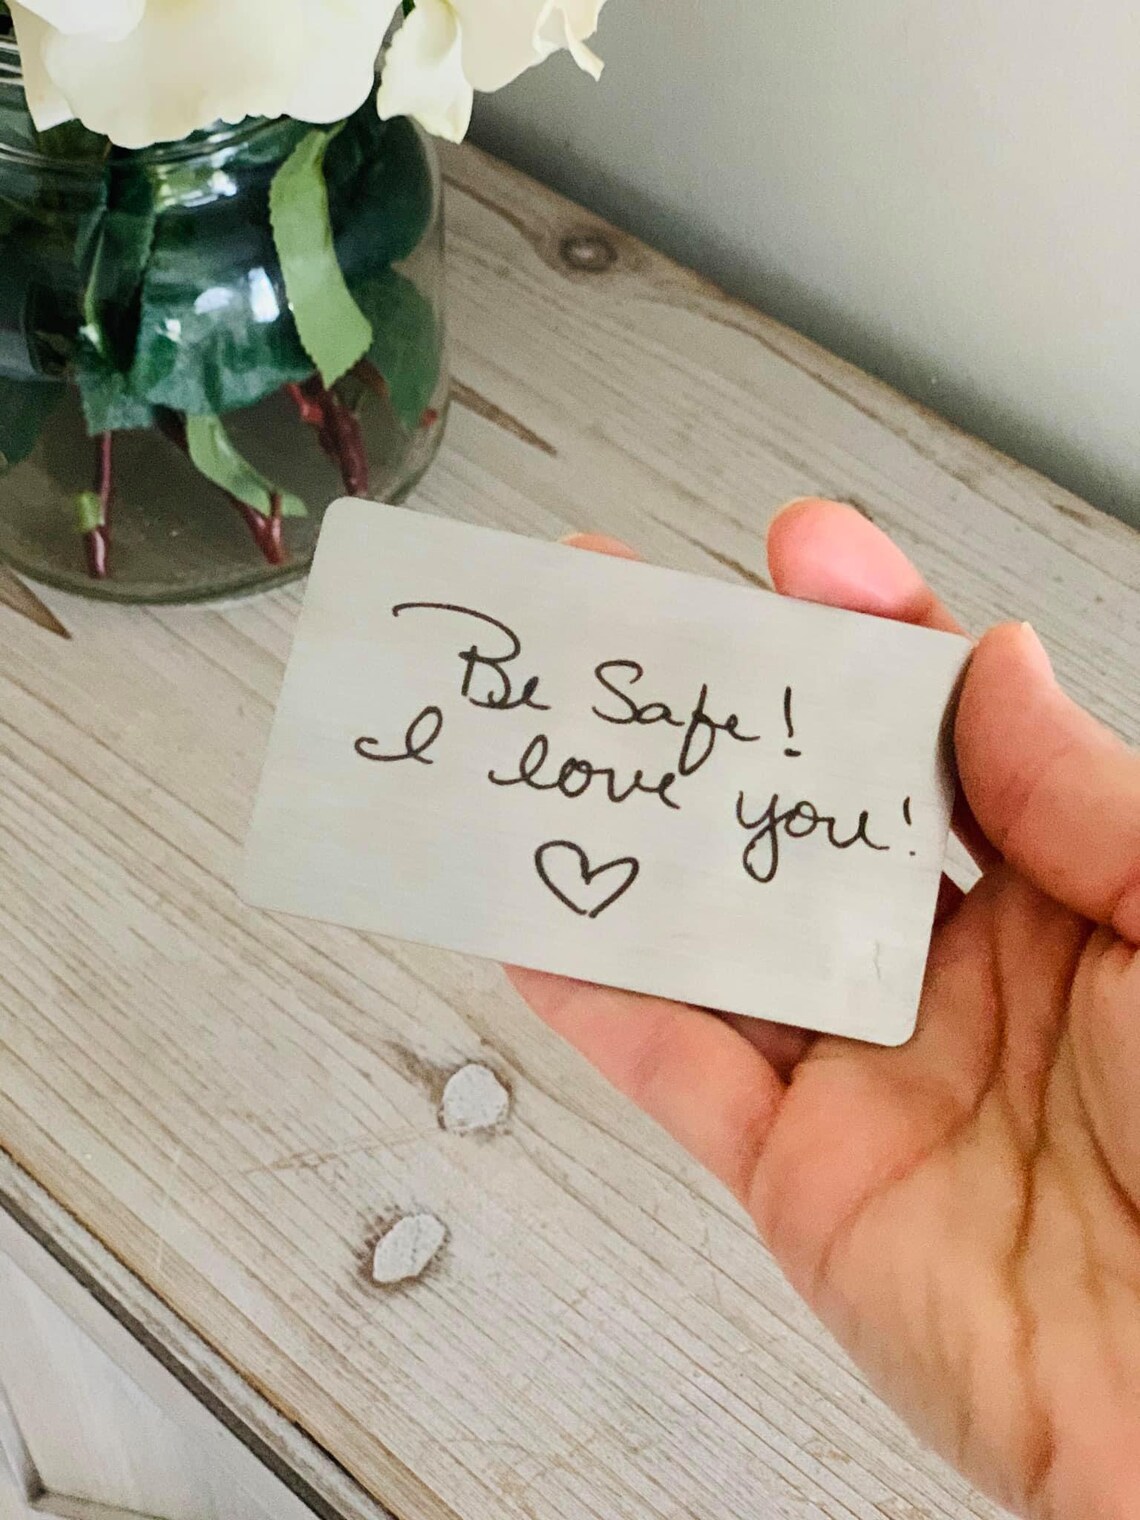 Be Safe!
I love you!